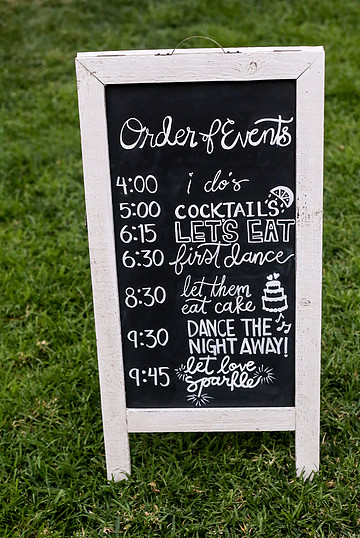 Order of Events
4:00 i do's
5:00 COCKTAILS
6:15 LET'S EAT
6:30 first dance
8:30 let them
eat cake
9:30 DANCE THE
NIGHT AWAY!
9:45 let love
sparkle